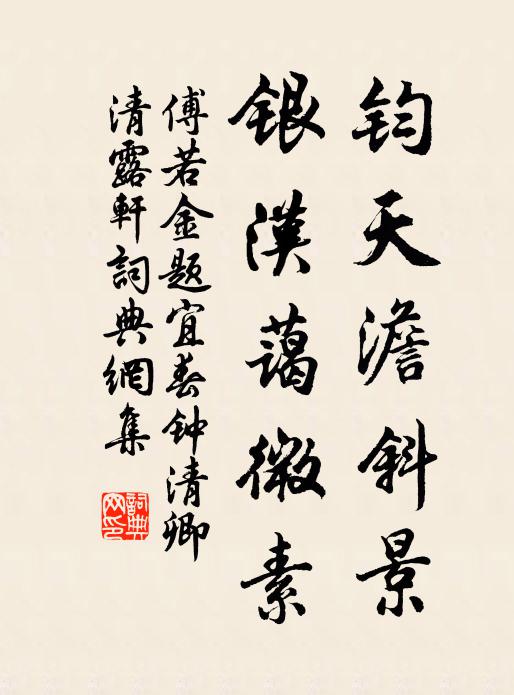 钧天澹斜景
银汉蔼微素
傅若金题宜春钟清卿
清露轩词典網集
詞典
网印